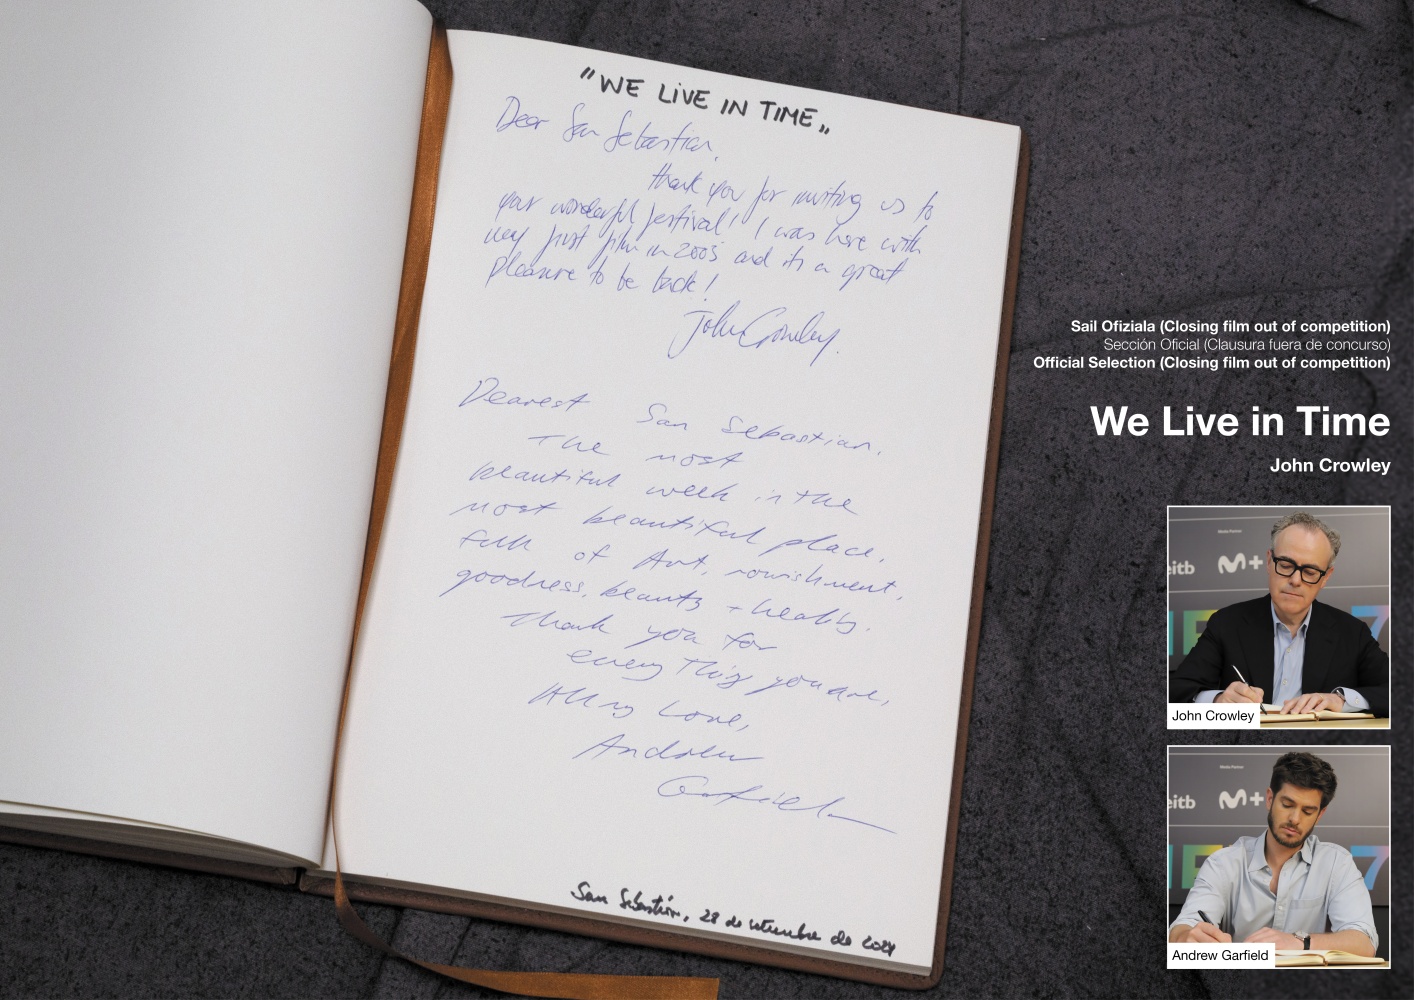 "WE LIVE IN TIME"
Dear San Sebastian,
thank you for inviting us to
your wonderful festival! I was here with
my first film in 2003 and its a great
pleasure to be back!
John Crowley.
Dearest San Sebastian,
The most
beautiful week in the
most beautiful place,
full of Art, nourishment,
goodness, beauty +
Thank you for
everything you are,
All my Love,
Andrew
Garfield
San Sebastián, 28 de setiembre de 2024
Sail Ofiziala (Closing film out of competition)
Sección Oficial (Clausura fuera de concurso)
Official Selection (Closing film out of competition)
We Live in Time
John Crowley
Media Partner
eitb M+
7
John Crowley
Media Partner
eitb M+
7
Andrew Garfield